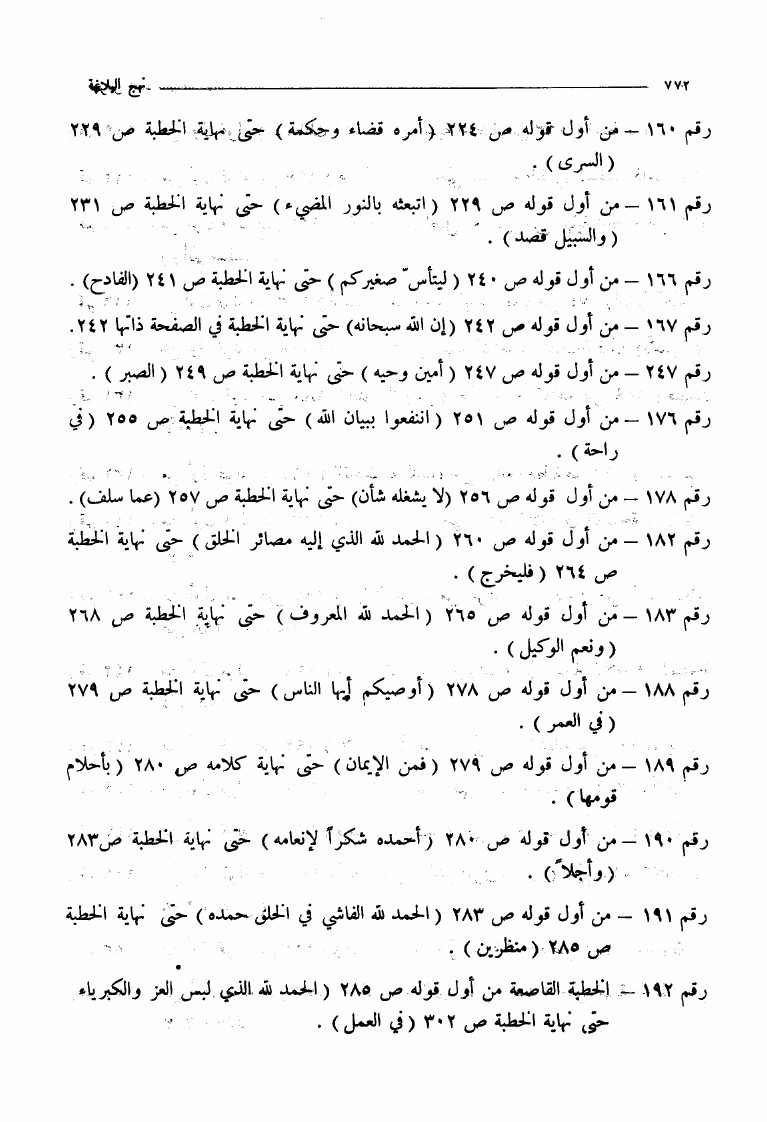 ٧٧٢ نهج البلاغة
رقم ١٦٠ – من أول قوله ص ٢٢٤ (أمره قضاء وحكمة) حتى نهاية الخطبة ص ٢٢٩
(السرى) .
رقم ١٦١ – من أول قوله ص ٢٢٩ (اتبعثه بالنور المضيء) حتى نهاية الخطبة ص ٢٣١
(والسبيل قصد) .
رقم ١٦٦ – من أول قوله ص ٢٤٠ (ليتأسّ صغيركم) حتى نهاية الخطبة ص ٢٤١ (الفادح) .
رقم ١٦٧ – من أول قوله ص ٢٤٢ (إن الله سبحانه) حتى نهاية الخطبة في الصفحة ذاتها ٢٤٢.
رقم ٢٤٧ – من أول قوله ص ٢٤٧ (أمين وحيه) حتى نهاية الخطبة ص ٢٤٩ (الصبر) .
رقم ١٧٦ – من أول قوله ص ٢٥١ (انتفعوا ببيان الله) حتى نهاية الخطبة ص ٢٥٥ (في
راحة) .
رقم ١٧٨ – من أول قوله ص ٢٥٦ (لا يشغله شأن) حتى نهاية الخطبة ص ٢٥٧ (عما سلف) .
رقم ١٨٢ – من أول قوله ص ٢٦٠ (الحمد لله الذي إليه مصائر الخلق) حتى نهاية الخطبة
ص ٢٦٤ (فليخرج) .
رقم ١٨٣ – من أول قوله ص ٢٦٥ (الحمد لله المعروف) حتى نهاية الخطبة ص ٢٦٨
(ونعم الوكيل) .
رقم ١٨٨ – من أول قوله ص ٢٧٨ (أوصيكم أيها الناس) حتى نهاية الخطبة ص ٢٧٩
(في العمر) .
رقم ١٨٩ – من أول قوله ص ٢٧٩ (فمن الإيمان) حتى نهاية كلامه ص ٢٨٠ (بأحلام
قومها) .
رقم ١٩٠ – من أول قوله ص ٢٨٠ (أحمده شكراً لإنعامه) حتى نهاية الخطبة ص٢٨٣
(وأجلاً) .
رقم ١٩١ – من أول قوله ص ٢٨٣ (الحمد لله الفاشي في الخلق حمده) حتى نهاية الخطبة
ص ٢٨٥ (منظرين) .
رقم ١٩٢ – الخطبة القاصعة من أول قوله ص ٢٨٥ (الحمد لله الذي لبس العز والكبرياء
حتى نهاية الخطبة ص ٣٠٢ (في العمل) .